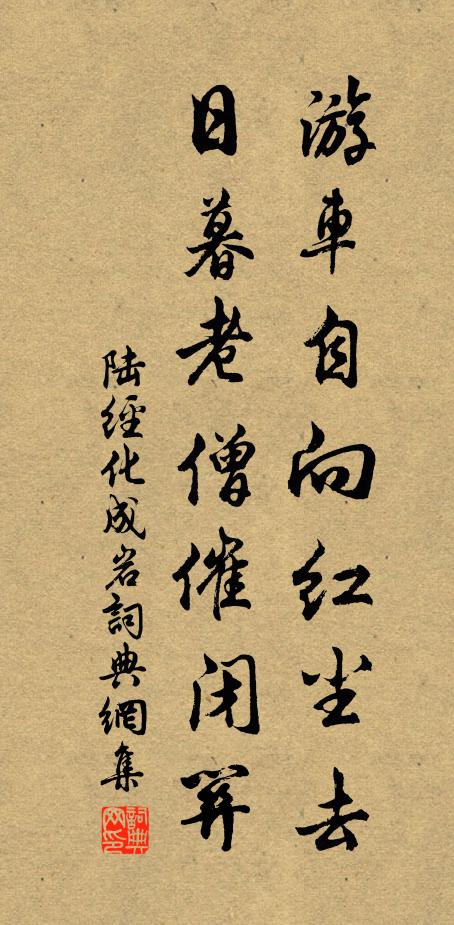 游車自向紅尘去
日暮老僧催閉關
陸經化成岩詞典網集
詞典网印